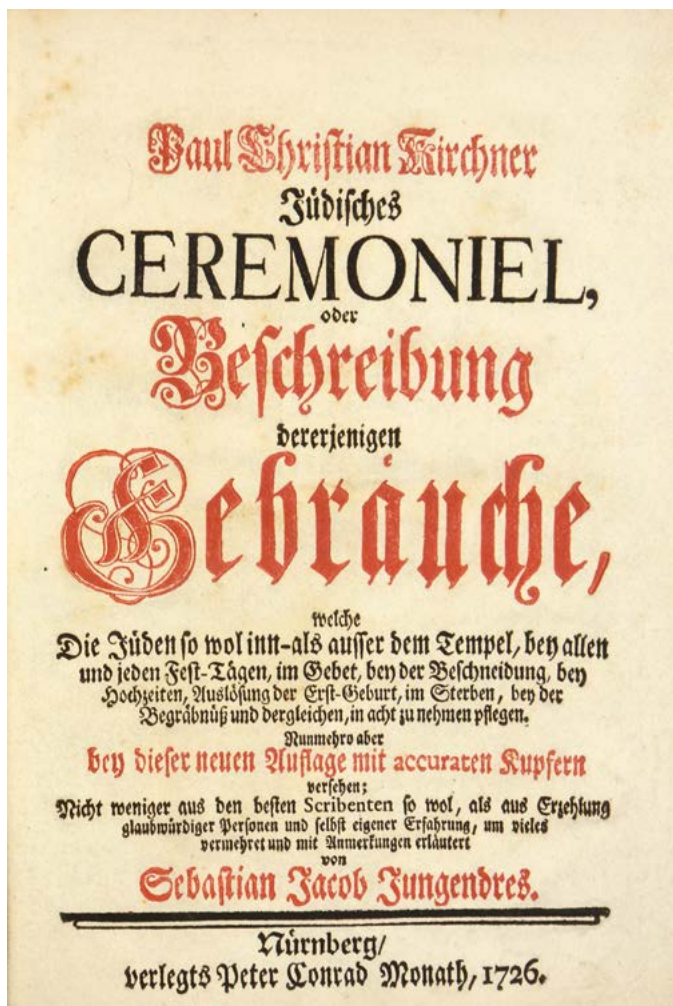 Paul Christian Kirchner
Jüdisches
CEREMONIEL,
oder
Beschreibung
dererjenigen
Gebräuche,
welche
Die Jüden so wol inn-als ausser dem Tempel, bey allen
und jeden Fest-Tägen, im Gebet, bey der Beschneidung, bey
Hochzeiten, Auslösung der Erst-Geburt, im Sterben, bey der
Begräbnüß und dergleichen, in acht zu nehmen pflegen.
Nunmehro aber
bey dieser neuen Auflage mit accuraten Kupfern
versehen;
Nicht weniger aus den besten Scribenten so wol, als aus Erzehlung
glaubwürdiger Personen und selbst eigener Erfahrung, um vieles
vermehret und mit Anmerkungen erläutert
von
Sebastian Jacob Jungendres.
Nürnberg/
verlegts Peter Conrad Monath, 1726.